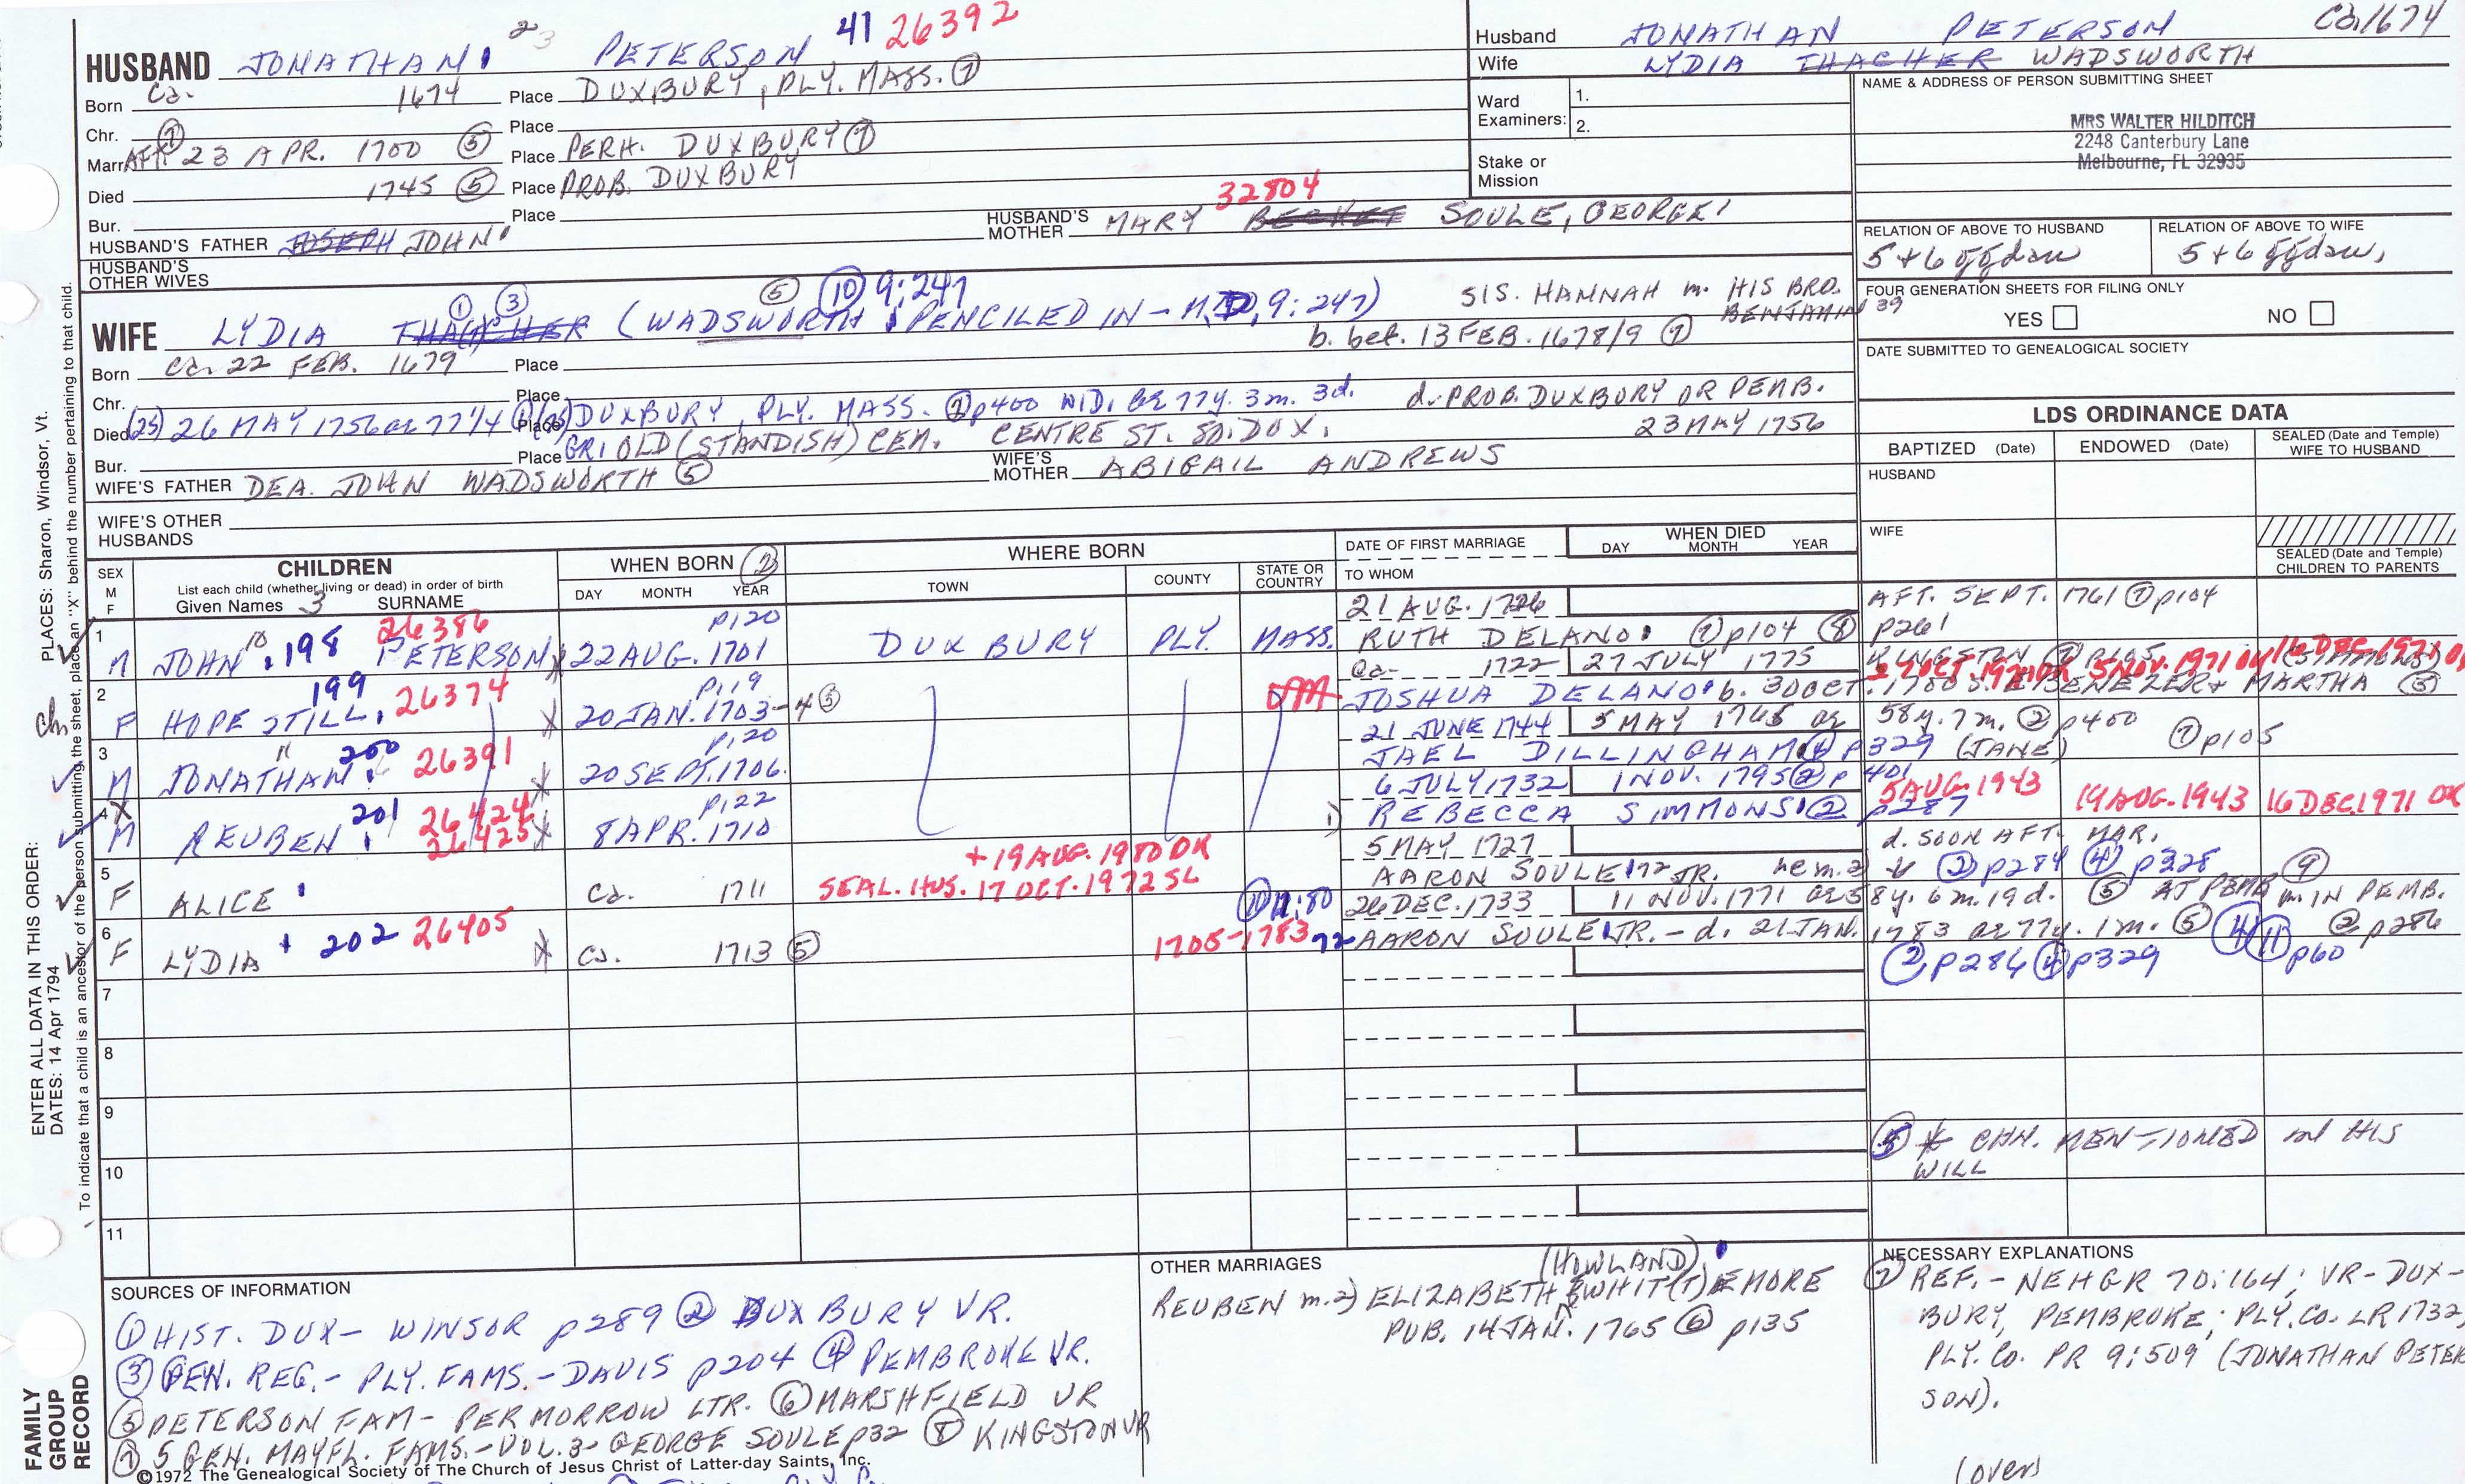 HUSBAND JONATHAN PETERSON 41 26392
Born Ca. 1674 Place DUXBURY, PLY. MASS. ⑦
Chr. Place
Marr. AFT. ⑦ 23 APR. 1700 ⑤ Place PERH. DUXBURY ⑦
Died 1745 ⑤ Place PROB. DUXBURY
Bur. Place
HUSBAND'S FATHER JOSEPH JOHN
HUSBAND'S MOTHER MARY 32804 BECKET SOULE, GEORGE
HUSBAND'S OTHER WIVES
Husband JONATHAN PETERSON Ca 1674
Wife LYDIA THACHER WADSWORTH
Ward Examiners: 1.
2.
Stake or Mission
NAME & ADDRESS OF PERSON SUBMITTING SHEET
MRS WALTER HILDITCH
2248 Canterbury Lane
Melbourne, FL 32935
RELATION OF ABOVE TO HUSBAND
5+6 ggdau
RELATION OF ABOVE TO WIFE
5+6 ggdau,
FOUR GENERATION SHEETS FOR FILING ONLY
YES NO
DATE SUBMITTED TO GENEALOGICAL SOCIETY
① ③ ⑤ ⑩ 9:247
WIFE LYDIA THACHER (WADSWORTH PENCILED IN - M.D. 9:247)
SIS. HANNAH m. HIS BRO.
BENJAMIN 39
b. bet. 13 FEB. 1678/9 ⑦
Born Ca. 22 FEB. 1679 Place
Chr. Place
Died (25) 26 MAY 1756 ae 77 1/4 Place DUXBURY, PLY. MASS. ② p400 WID. ae 77y. 3m. 3d. d. PROB. DUXBURY OR PEMB.
23 MAY 1756
Bur. Place GR. OLD (STANDISH) CEM. CENTRE ST. SO. DUX.
WIFE'S FATHER DEA. JOHN WADSWORTH ⑤
WIFE'S MOTHER ABIGAIL ANDREWS
WIFE'S OTHER HUSBANDS
LDS ORDINANCE DATA
BAPTIZED (Date) ENDOWED (Date) SEALED (Date and Temple) WIFE TO HUSBAND
HUSBAND
WIFE
SEALED (Date and Temple) CHILDREN TO PARENTS
SEX M F
CHILDREN
List each child (whether living or dead) in order of birth
Given Names 3 SURNAME
WHEN BORN ②
DAY MONTH YEAR
WHERE BORN
TOWN COUNTY STATE OR COUNTRY
DATE OF FIRST MARRIAGE
TO WHOM
WHEN DIED
DAY MONTH YEAR
1 26386 p120 21 AUG. 1726 AFT. SEPT. 1761 ⑦ p104
M JOHN 198 PETERSON X 22 AUG. 1701 DUXBURY PLY. MASS. RUTH DELANO ⑦ p104 ⑧ p261
2 199 26374 p119 Ca. 1722 27 JULY 1775 KINGSTON ⑦ p105
F HOPESTILL X 20 JAN. 1703-4 ⑤ JOSHUA DELANO b. 30 OCT. 1700 S. EBENEZER + MARTHA ⑤
3 200 26391 p120 21 JUNE 1744 5 MAY 1765 ae 58y. 7m. ② p400 ⑦ p105
M JONATHAN X 20 SEPT. 1706 JAEL DILLINGHAM ④ p329 (JANE)
4 X 201 26424 p122 6 JULY 1732 1 NOV. 1795 ② p401 5 AUG. 1943 19 AUG. 1943 16 DEC. 1971 OK
M REUBEN 26425 X 8 APR. 1710 1) REBECCA SIMMONS ② p287
5 + 19 AUG. 1980 OK 5 MAY 1727 d. SOON AFT. MAR.
F ALICE Ca. 1711 SEAL. HUS. 17 OCT. 1972 SL AARON SOULE 172 JR. he m. 2) ② p284 ④ p328 ⑨
6 202 26405 ⑩ 11:80 26 DEC. 1733 11 NOV. 1771 ae 58y. 6m. 19d. ⑤ AT PEMB m. IN PEMB.
F LYDIA X Ca. 1713 ⑤ 1705-1783 72 AARON SOULE JR. - d. 21 JAN. 1783 ae 77y. 1m. ⑤ ④ ⑪ p60 ② p286
② p286 ④ p329
7
8
9
10
11
⑤ * CHN. MENTIONED in HIS
WILL
SOURCES OF INFORMATION
① HIST. DUX - WINSOR p289 ② DUXBURY VR.
③ GEN. REG. - PLY. FAMS. - DAVIS p204 ④ PEMBROKE VR.
⑤ PETERSON FAM - PER MORROW LTR. ⑥ MARSHFIELD VR
⑦ 5 GEN. MAYFL. FAMS. - VOL. 3 - GEORGE SOULE p32 ⑧ KINGSTON VR
©1972 The Genealogical Society of The Church of Jesus Christ of Latter-day Saints, Inc.
OTHER MARRIAGES
(HOWLAND)
REUBEN m. 2) ELIZABETH WHIT(T)EMORE
PUB. 14 JAN. 1765 ⑥ p135
NECESSARY EXPLANATIONS
⑦ REF. - NEHGR 70:164; VR-DUX-
BURY, PEMBROKE; PLY. CO. LR 1732,
PLY. CO. PR 9:509 (JONATHAN PETER
SON).
(over)
PLACES: Sharon, Windsor, Vt.
ENTER ALL DATA IN THIS ORDER:
DATES: 14 Apr 1794
To indicate that a child is an ancestor of the person submitting the sheet, place an "X" behind the number pertaining to that child.
FAMILY GROUP RECORD